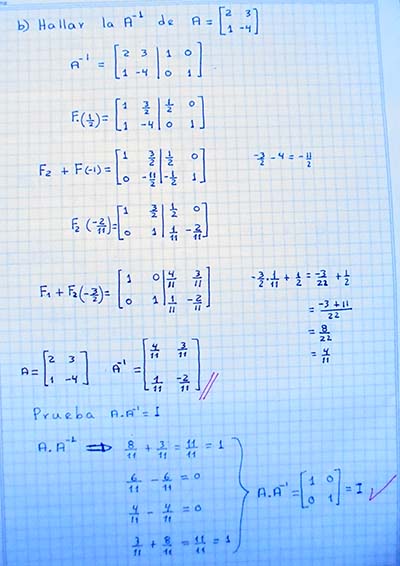 b) Hallar la A⁻¹ de A = [2 3; 1 -4]
A⁻¹ = [2 3 | 1 0; 1 -4 | 0 1]
F₁(1/2) = [1 3/2 | 1/2 0; 1 -4 | 0 1]
F₂ + F(-1) = [1 3/2 | 1/2 0; 0 -11/2 | -1/2 1] -3/2 - 4 = -11/2
F₂(-2/11) = [1 3/2 | 1/2 0; 0 1 | 1/11 -2/11]
F₁ + F₂(-3/2) = [1 0 | 4/11 3/11; 0 1 | 1/11 -2/11] -3/2 · 1/11 + 1/2 = -3/22 + 1/2
= -3 + 11/22
= 8/22
= 4/11
A = [2 3; 1 -4] A⁻¹ = [4/11 3/11; 1/11 -2/11]
Prueba A.A⁻¹ = I
A.A⁻¹ ⟹ 8/11 + 3/11 = 11/11 = 1
6/11 - 6/11 = 0
4/11 - 4/11 = 0
3/11 + 8/11 = 11/11 = 1
A.A⁻¹ = [1 0; 0 1] = I